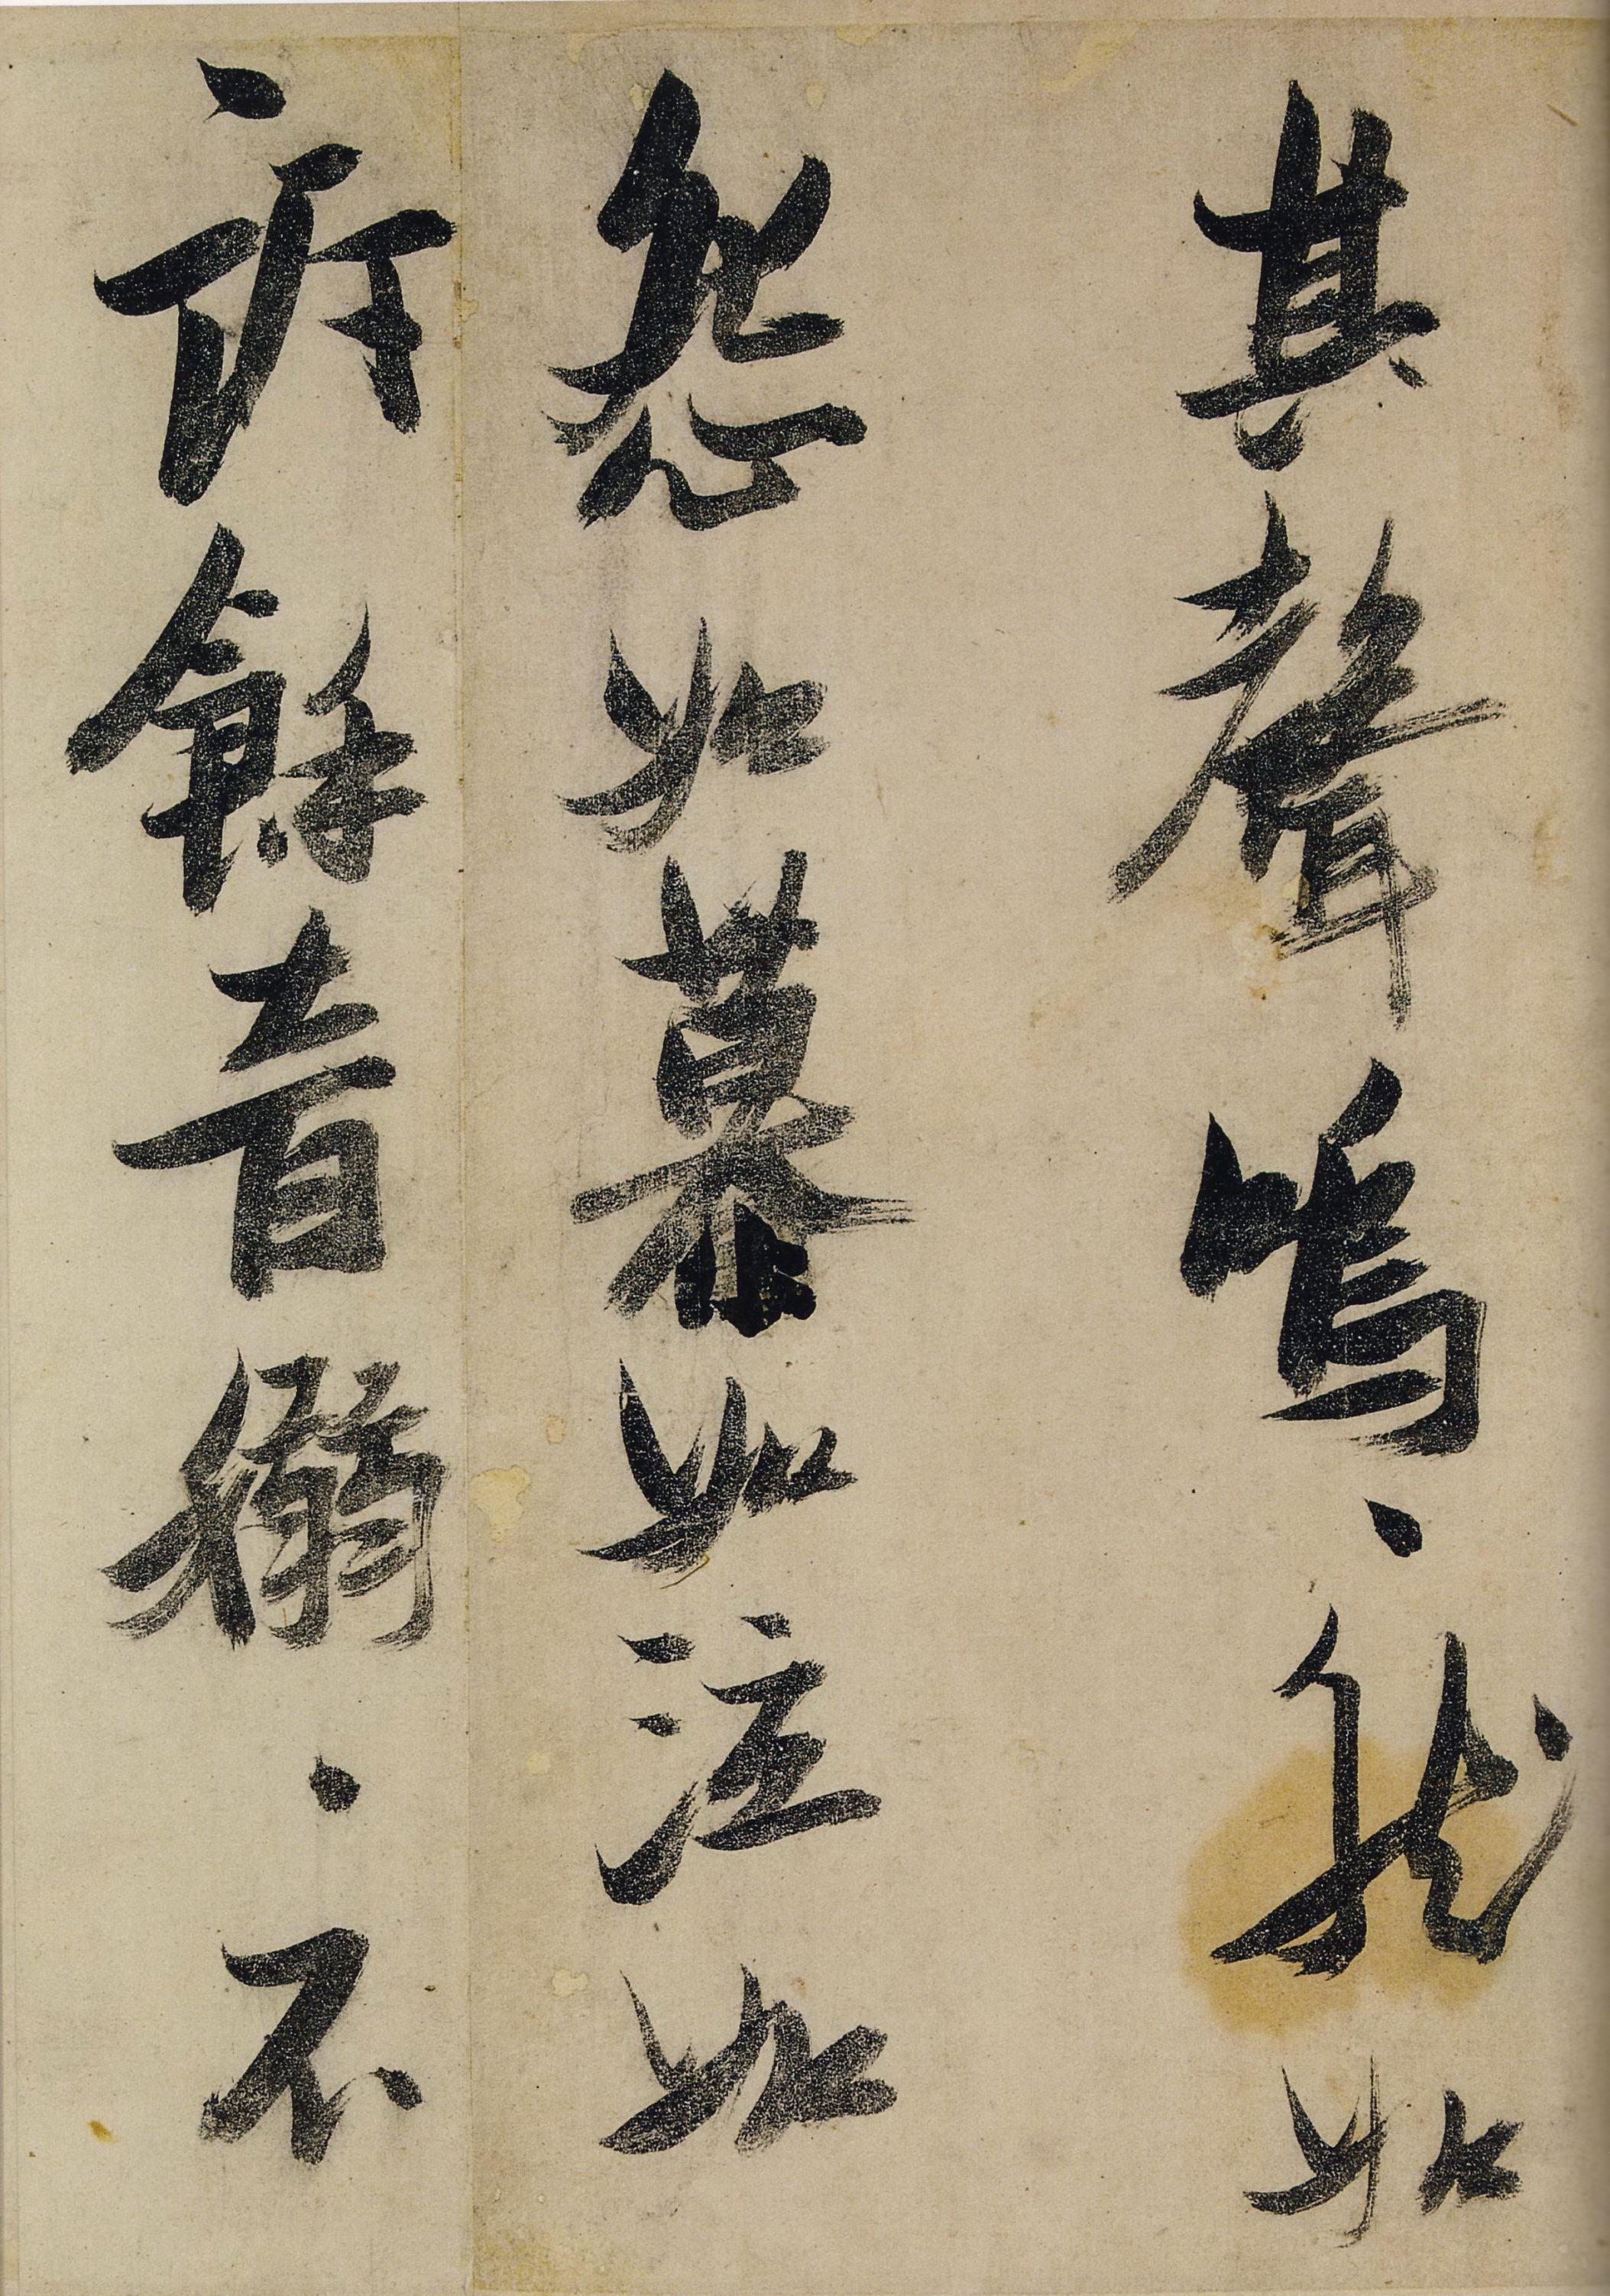 其聲嗚、然如
怨如慕如泣如
訴餘音嫋、不